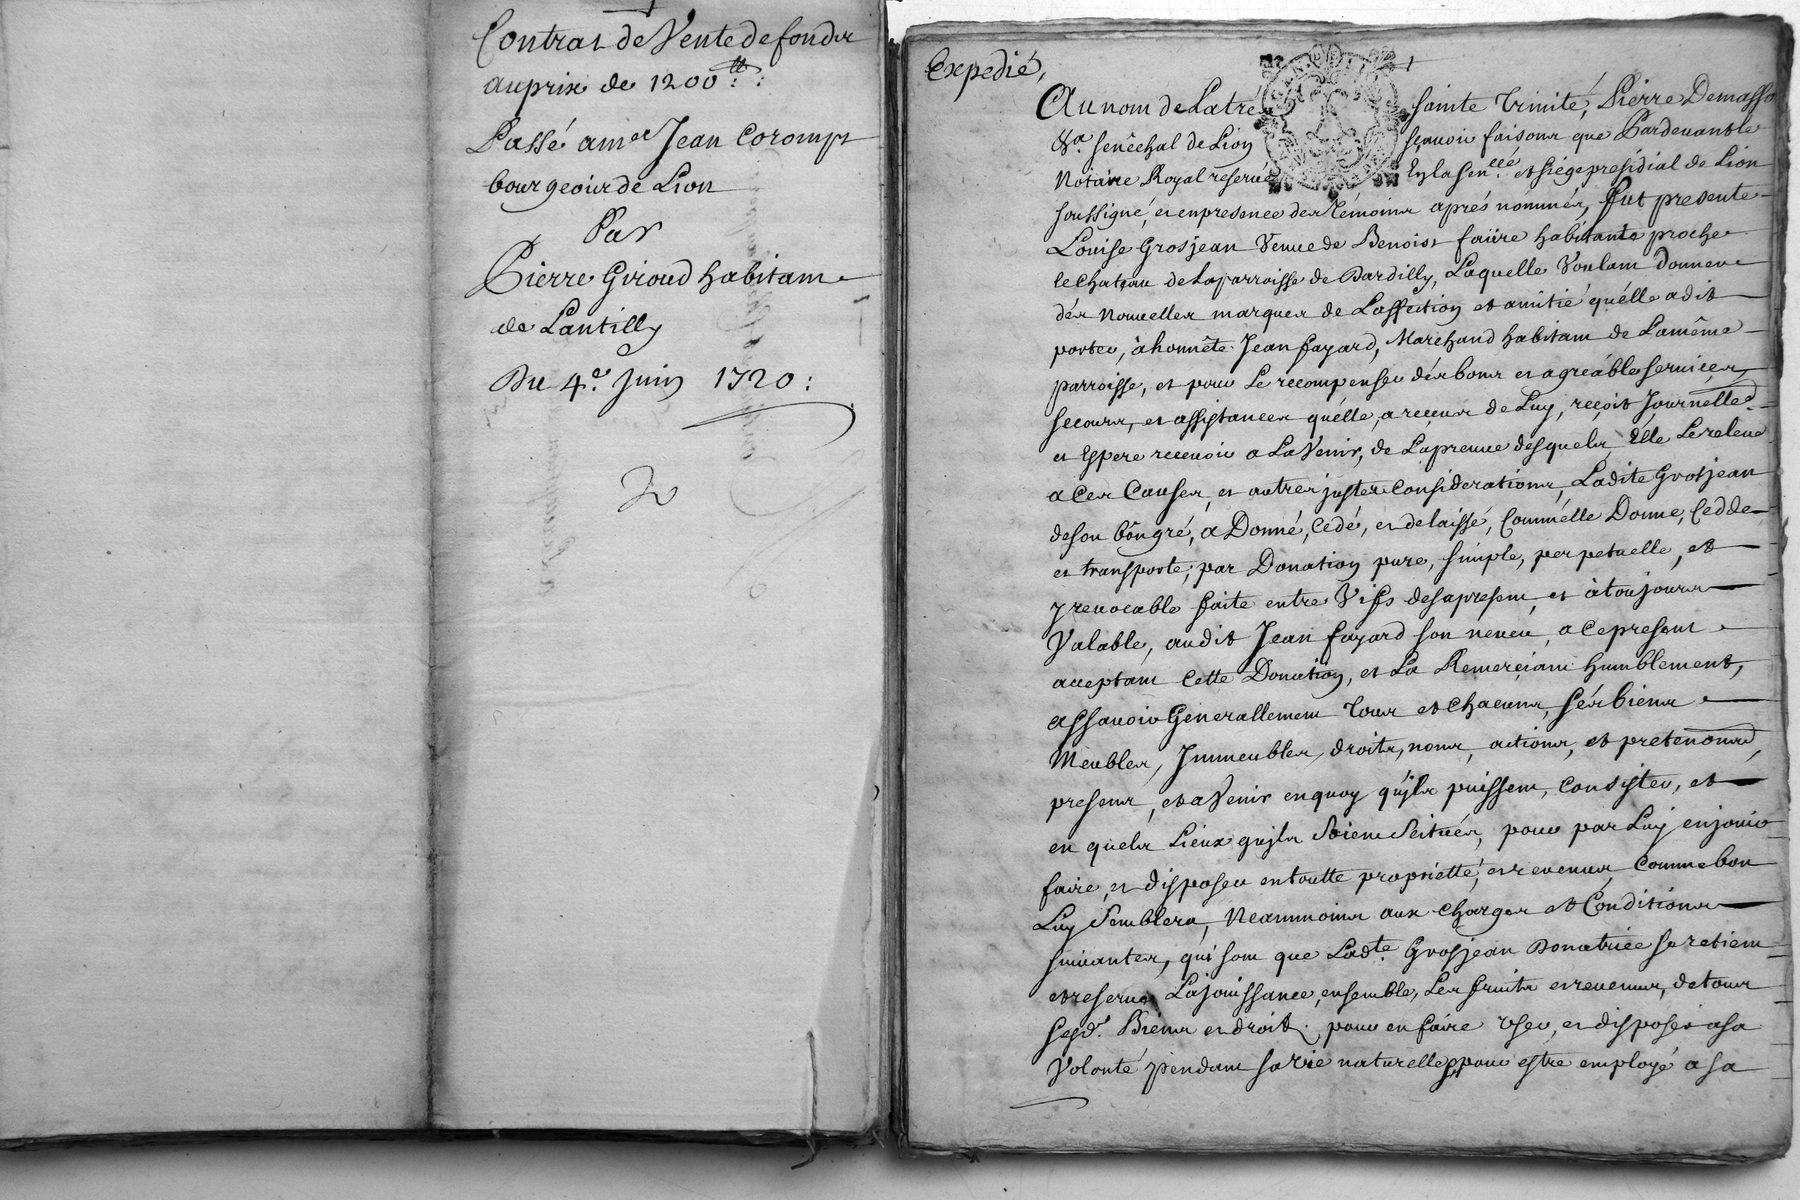 Contrat de Vente de fonds
au prix de 1200 ₶ :
Passé a mer Jean Corompt
bourgeois de Lion
Par
Pierre Giroud habitant
de Lantilly
Du 4e. Juin 1720 :
Expedié,
Au nom de La tres sainte Trinité, Pierre Demasso
sénéchal de Lion sçavoir faisons que Pardevant Le
Notaire Royal reservé En la Senccée et siége presidial de Lion
soussigné, et en presence des Témoins aprés nommés, fut presente
Louise Grosjean Veuve de Benoist faure habitante proche
le chateau de La parroisse de Dardilly, Laquelle Voulant donner
dés Nouvelles marques de L'affection et amitié qu'élle a dit
porter, à honnête Jean fayard, Marchand habitant de La méme
parroisse, et pour Le recompenser dés bons et agréables services,
secours, et assistances qu'élle, a reçeus de Luy, reçoit Journellet.
et Espere recevoir a La Venir, de La preuve desquels, Elle Le releve
a Ces Causes, et autres justes Considerations, Ladite Grosjean
de son bôn gré, a Donné, Cedé, et delaissé, Comm'élle Donne, Cedde
et transporte; par Donation pure, simple, perpetuelle, et
yrrevocable faite entre Vifs des a present, et à toujours
Valable, audit Jean fayard son neveu, a Ce present
acceptant Cette Donation, et La Remerçiant humblement,
assavoir Generallement Tous et chacuns, sés biens
Meubles, Immeubles, droits, noms, actions, et pretentions,
presens, et a Venir en quoy qu'jls puissent, Consister, et
en quels Lieux qujls soient seitués, pour par Luy en jouir
faire, et disposer en toutte propriétté, et revenus, Comme bon
Luy Semblera, Neanmoins aux charges et Conditions
suivantes, qui sont que Ladte. Grosjean Donatrice se retient
et reserve La jouissance, ensemble, Les fruits et revenus, de tous
sesd. Biens et droits. pour en faire, user, et disposer a sa
Volonté pendant sa vie naturelle, pour estre employé a sa